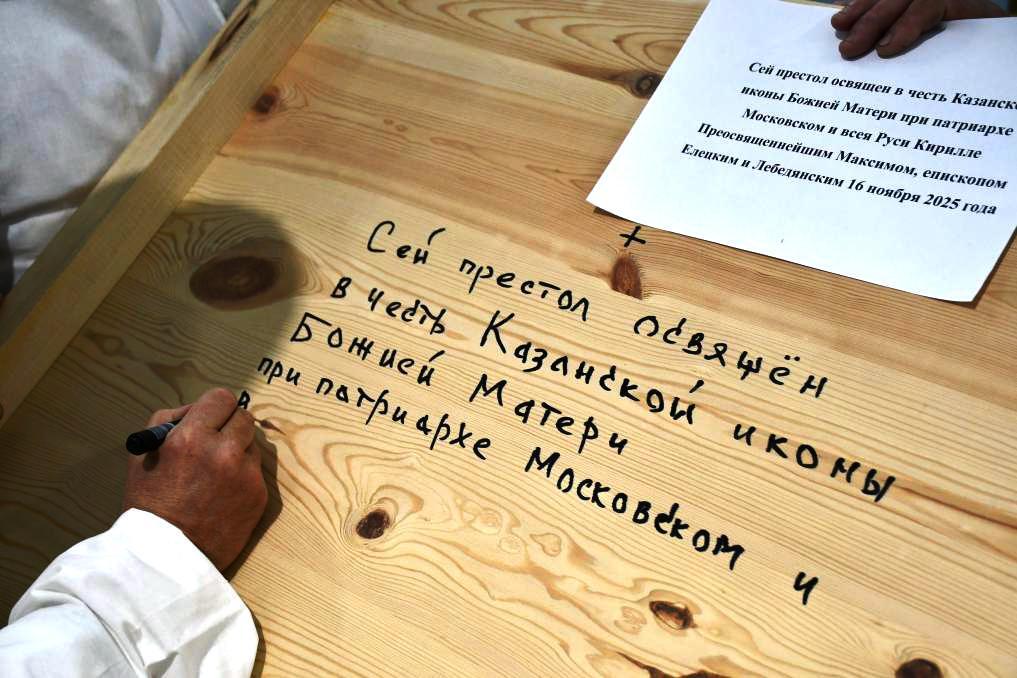 Сей престол освящен в честь Казанско
иконы Божией Матери при патриархе
Московском и всея Руси Кирилле
Преосвященнейшим Максимом, епископом
Елецким и Лебедянским 16 ноября 2025 года
+
Сей престол освящён
в честь Казанской иконы
Божией Матери
при патриархе Московском и
в